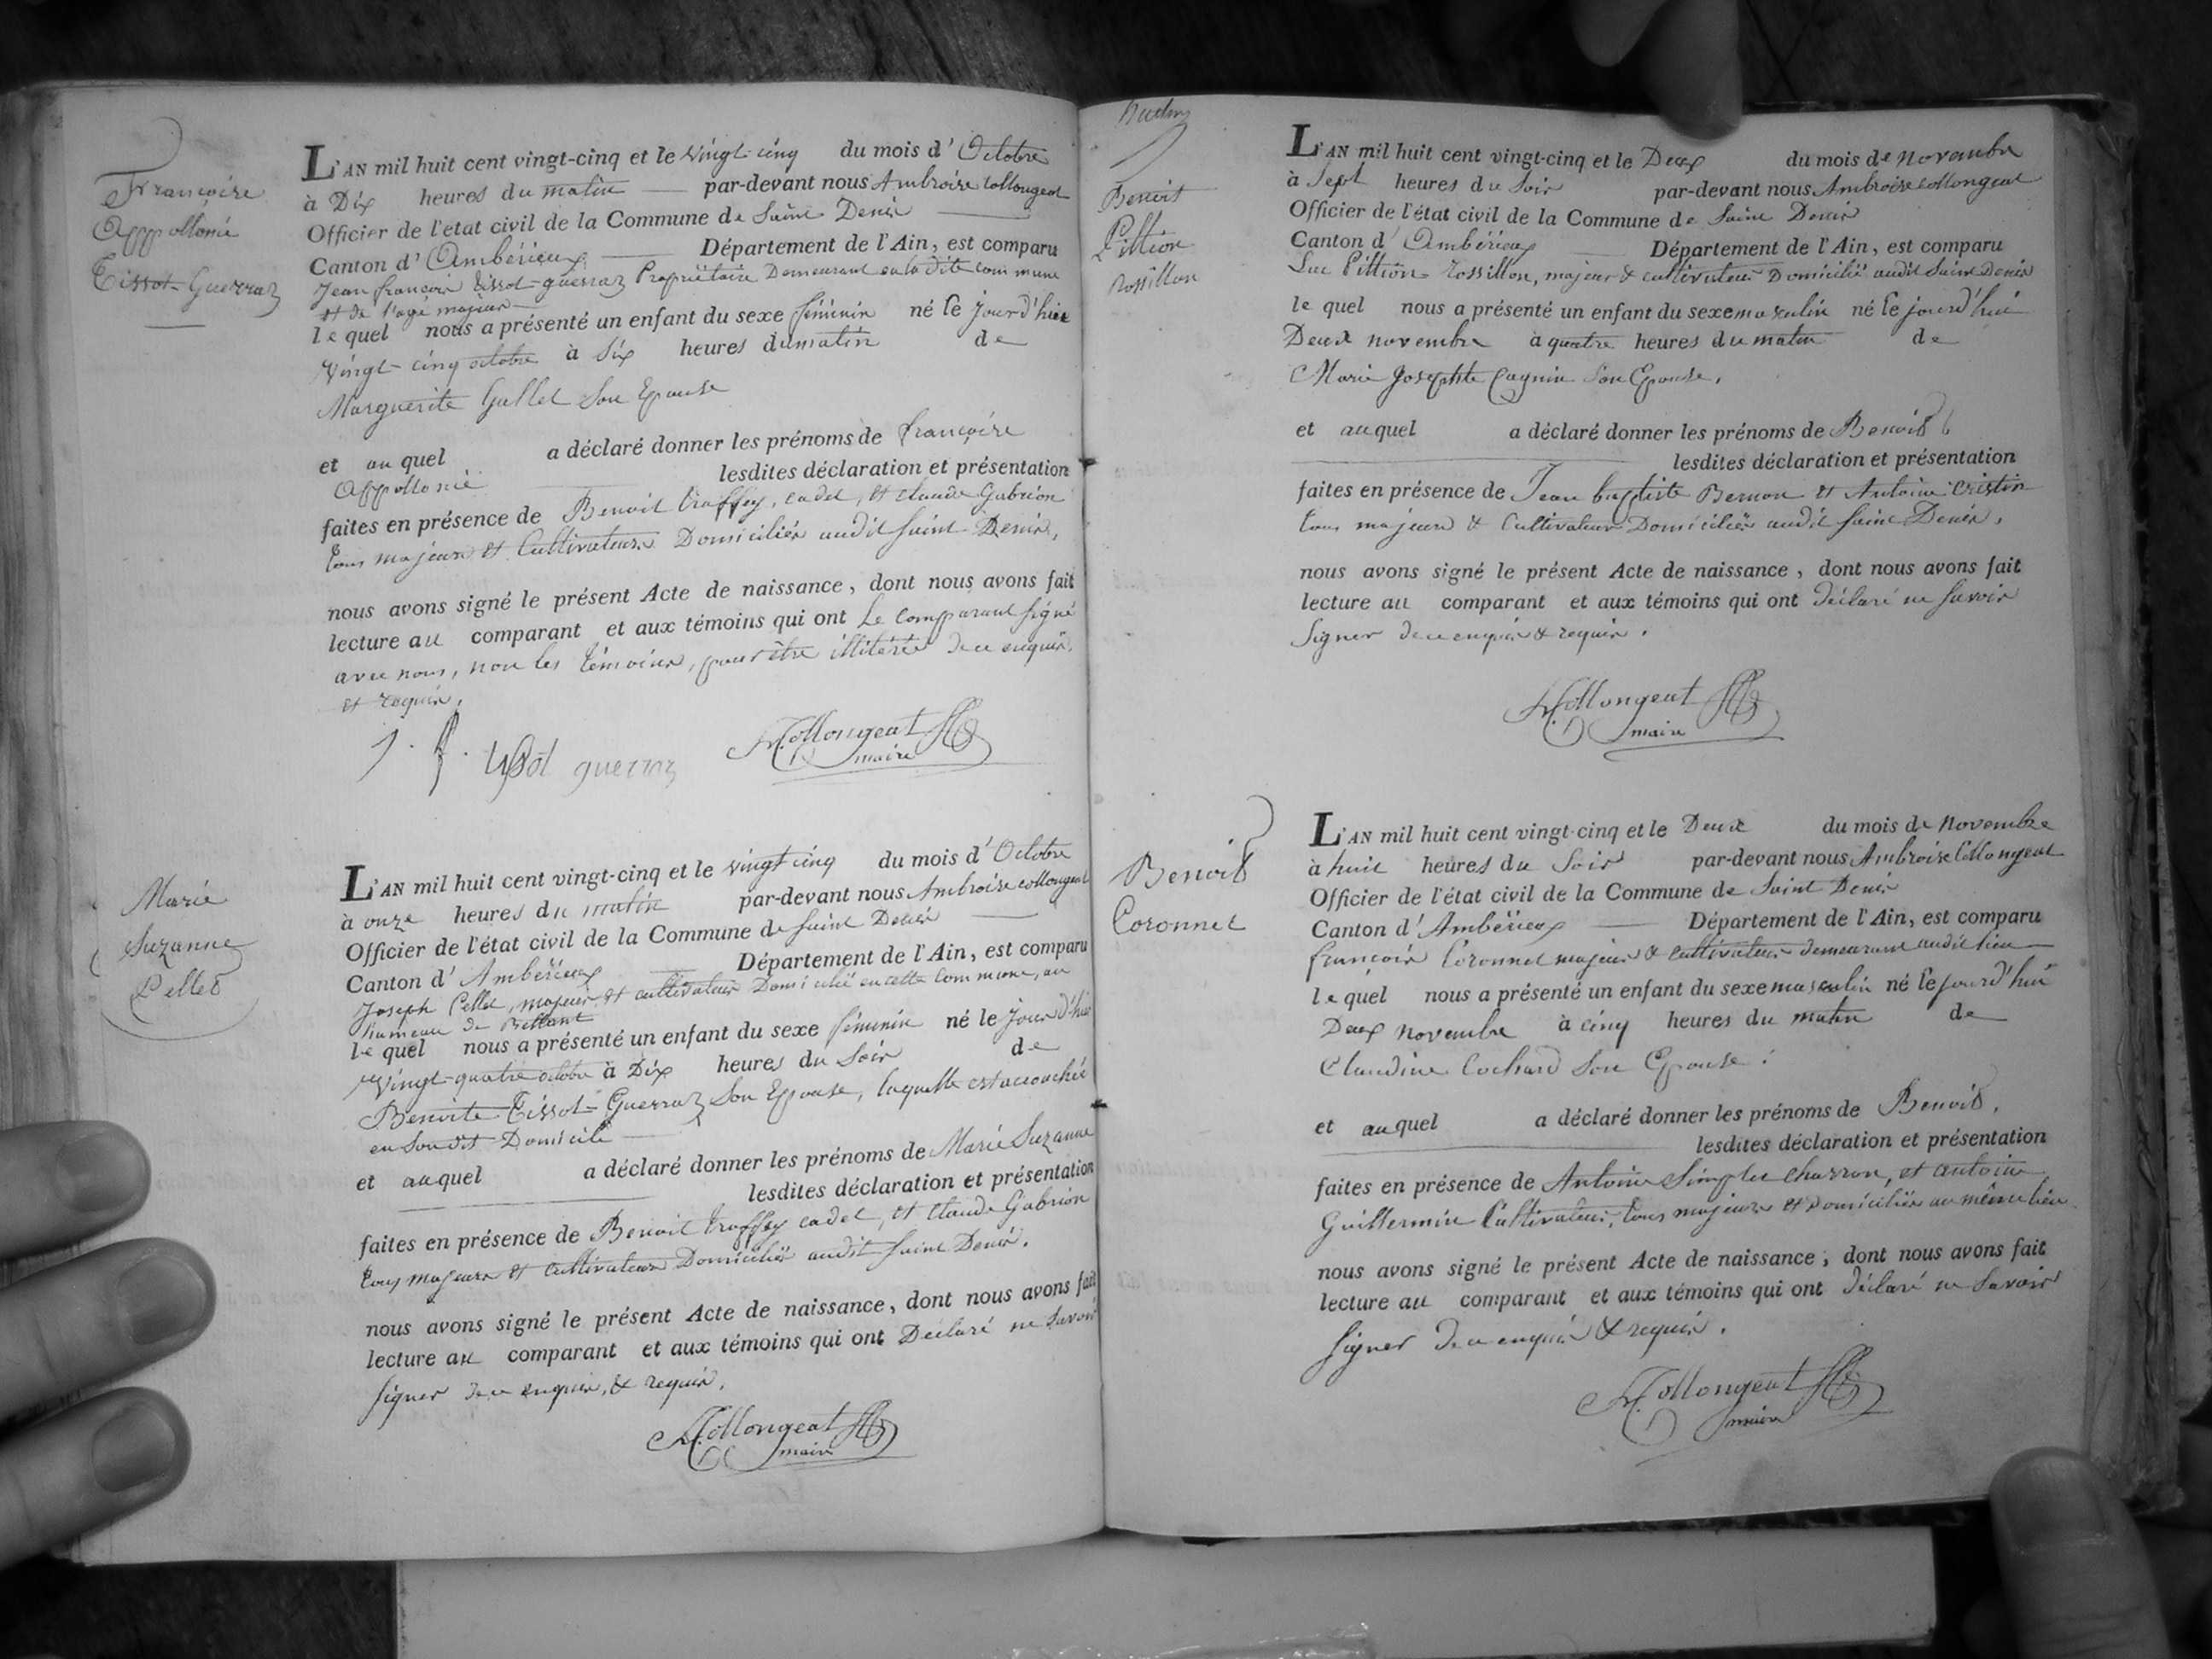 Françoise
Appollonie
Tissot-Guerraz
L'AN mil huit cent vingt-cinq et le vingt-cinq du mois d'Octobre
à Dix heures du matin par-devant nous Ambroise Collongeat
Officier de l'état civil de la Commune de Saint Denis
Canton d'Ambérieux Département de l'Ain, est comparu
Jean françois Tissot-guerraz Propriétaire Demeurant en la dite commune
et de l'age majeur
le quel nous a présenté un enfant du sexe féminin né le jourd'hier
vingt-cinq octobre à Six heures du matin de
Marguerite Gallet Son Epouse
et auquel a déclaré donner les prénoms de françoise
Appollonie lesdites déclaration et présentation
faites en présence de Benoit truffey, cadet, et claude Gabrion
tous majeurs et Cultivateurs Domiciliés audit Saint-Denis,
nous avons signé le présent Acte de naissance, dont nous avons fait
lecture au comparant et aux témoins qui ont Le comparant signé
avec nous, non les témoins, pour être illitérés de ce enquis,
et requis,
j. f. tissot guerraz
A. Collongeat
maire
Marie
Suzanne
Pellet
L'AN mil huit cent vingt-cinq et le vingt cinq du mois d'Octobre
à onze heures du matin par-devant nous Ambroise Collongeat
Officier de l'état civil de la Commune de Saint Denis
Canton d'Ambérieux Département de l'Ain, est comparu
Joseph Pellet, majeur et cultivateur Domicilié en cette commune, au
hameau de
le quel nous a présenté un enfant du sexe féminin né le jour d'hier
vingt-quatre octobre à Dix heures du Soir de
Benoite Tissot-Guerraz Son Epouse, laquelle est accouchée
en Son dit Domicile
et auquel a déclaré donner les prénoms de Marie Suzanne
lesdites déclaration et présentation
faites en présence de Benoit truffey cadet, et claude Gabrion
tous majeurs et cultivateurs Domiciliés audit Saint Denis.
nous avons signé le présent Acte de naissance, dont nous avons fait
lecture au comparant et aux témoins qui ont Déclaré ne Savoir
Signer de ce enquis, & requis.
A. Collongeat
maire
Benoit
Pittion
Rossillon
L'AN mil huit cent vingt-cinq et le Deux du mois de novembre
à Sept heures du Soir par-devant nous Ambroise Collongeat
Officier de l'état civil de la Commune de Saint Denis
Canton d'Ambérieux Département de l'Ain, est comparu
Luc Pittion-rossillon, majeur & cultivateur Domicilié audit Saint Denis
le quel nous a présenté un enfant du sexe masculin né le jourd'hui
Deux novembre à quatre heures du matin de
Marie Josephte Cagnin Son Epouse,
et auquel a déclaré donner les prénoms de Benoit
lesdites déclaration et présentation
faites en présence de Jean baptiste Bernon et Antoine Cristin
tous majeurs & Cultivateurs Domiciliés audit Saint Denis,
nous avons signé le présent Acte de naissance, dont nous avons fait
lecture au comparant et aux témoins qui ont déclaré ne Savoir
Signer de ce enquis & requis.
A. Collongeat
maire
Benoit
Coronnet
L'AN mil huit cent vingt-cinq et le Deux du mois de Novembre
à huit heures du Soir par-devant nous Ambroise Collongeat
Officier de l'état civil de la Commune de Saint Denis
Canton d'Ambérieux Département de l'Ain, est comparu
françois Coronnet majeur & cultivateur demeurant audit lieu
le quel nous a présenté un enfant du sexe masculin né le jourd'hui
Deux novembre à cinq heures du matin de
Claudine Cochard Son Epouse
et auquel a déclaré donner les prénoms de Benoit,
lesdites déclaration et présentation
faites en présence de Antoine Simplex charron, et antoine
Guillermin Cultivateur, tous majeurs et Domiciliés au même lieu
nous avons signé le présent Acte de naissance, dont nous avons fait
lecture au comparant et aux témoins qui ont déclaré ne Savoir
Signer de ce enquis & requis.
A. Collongeat
maire